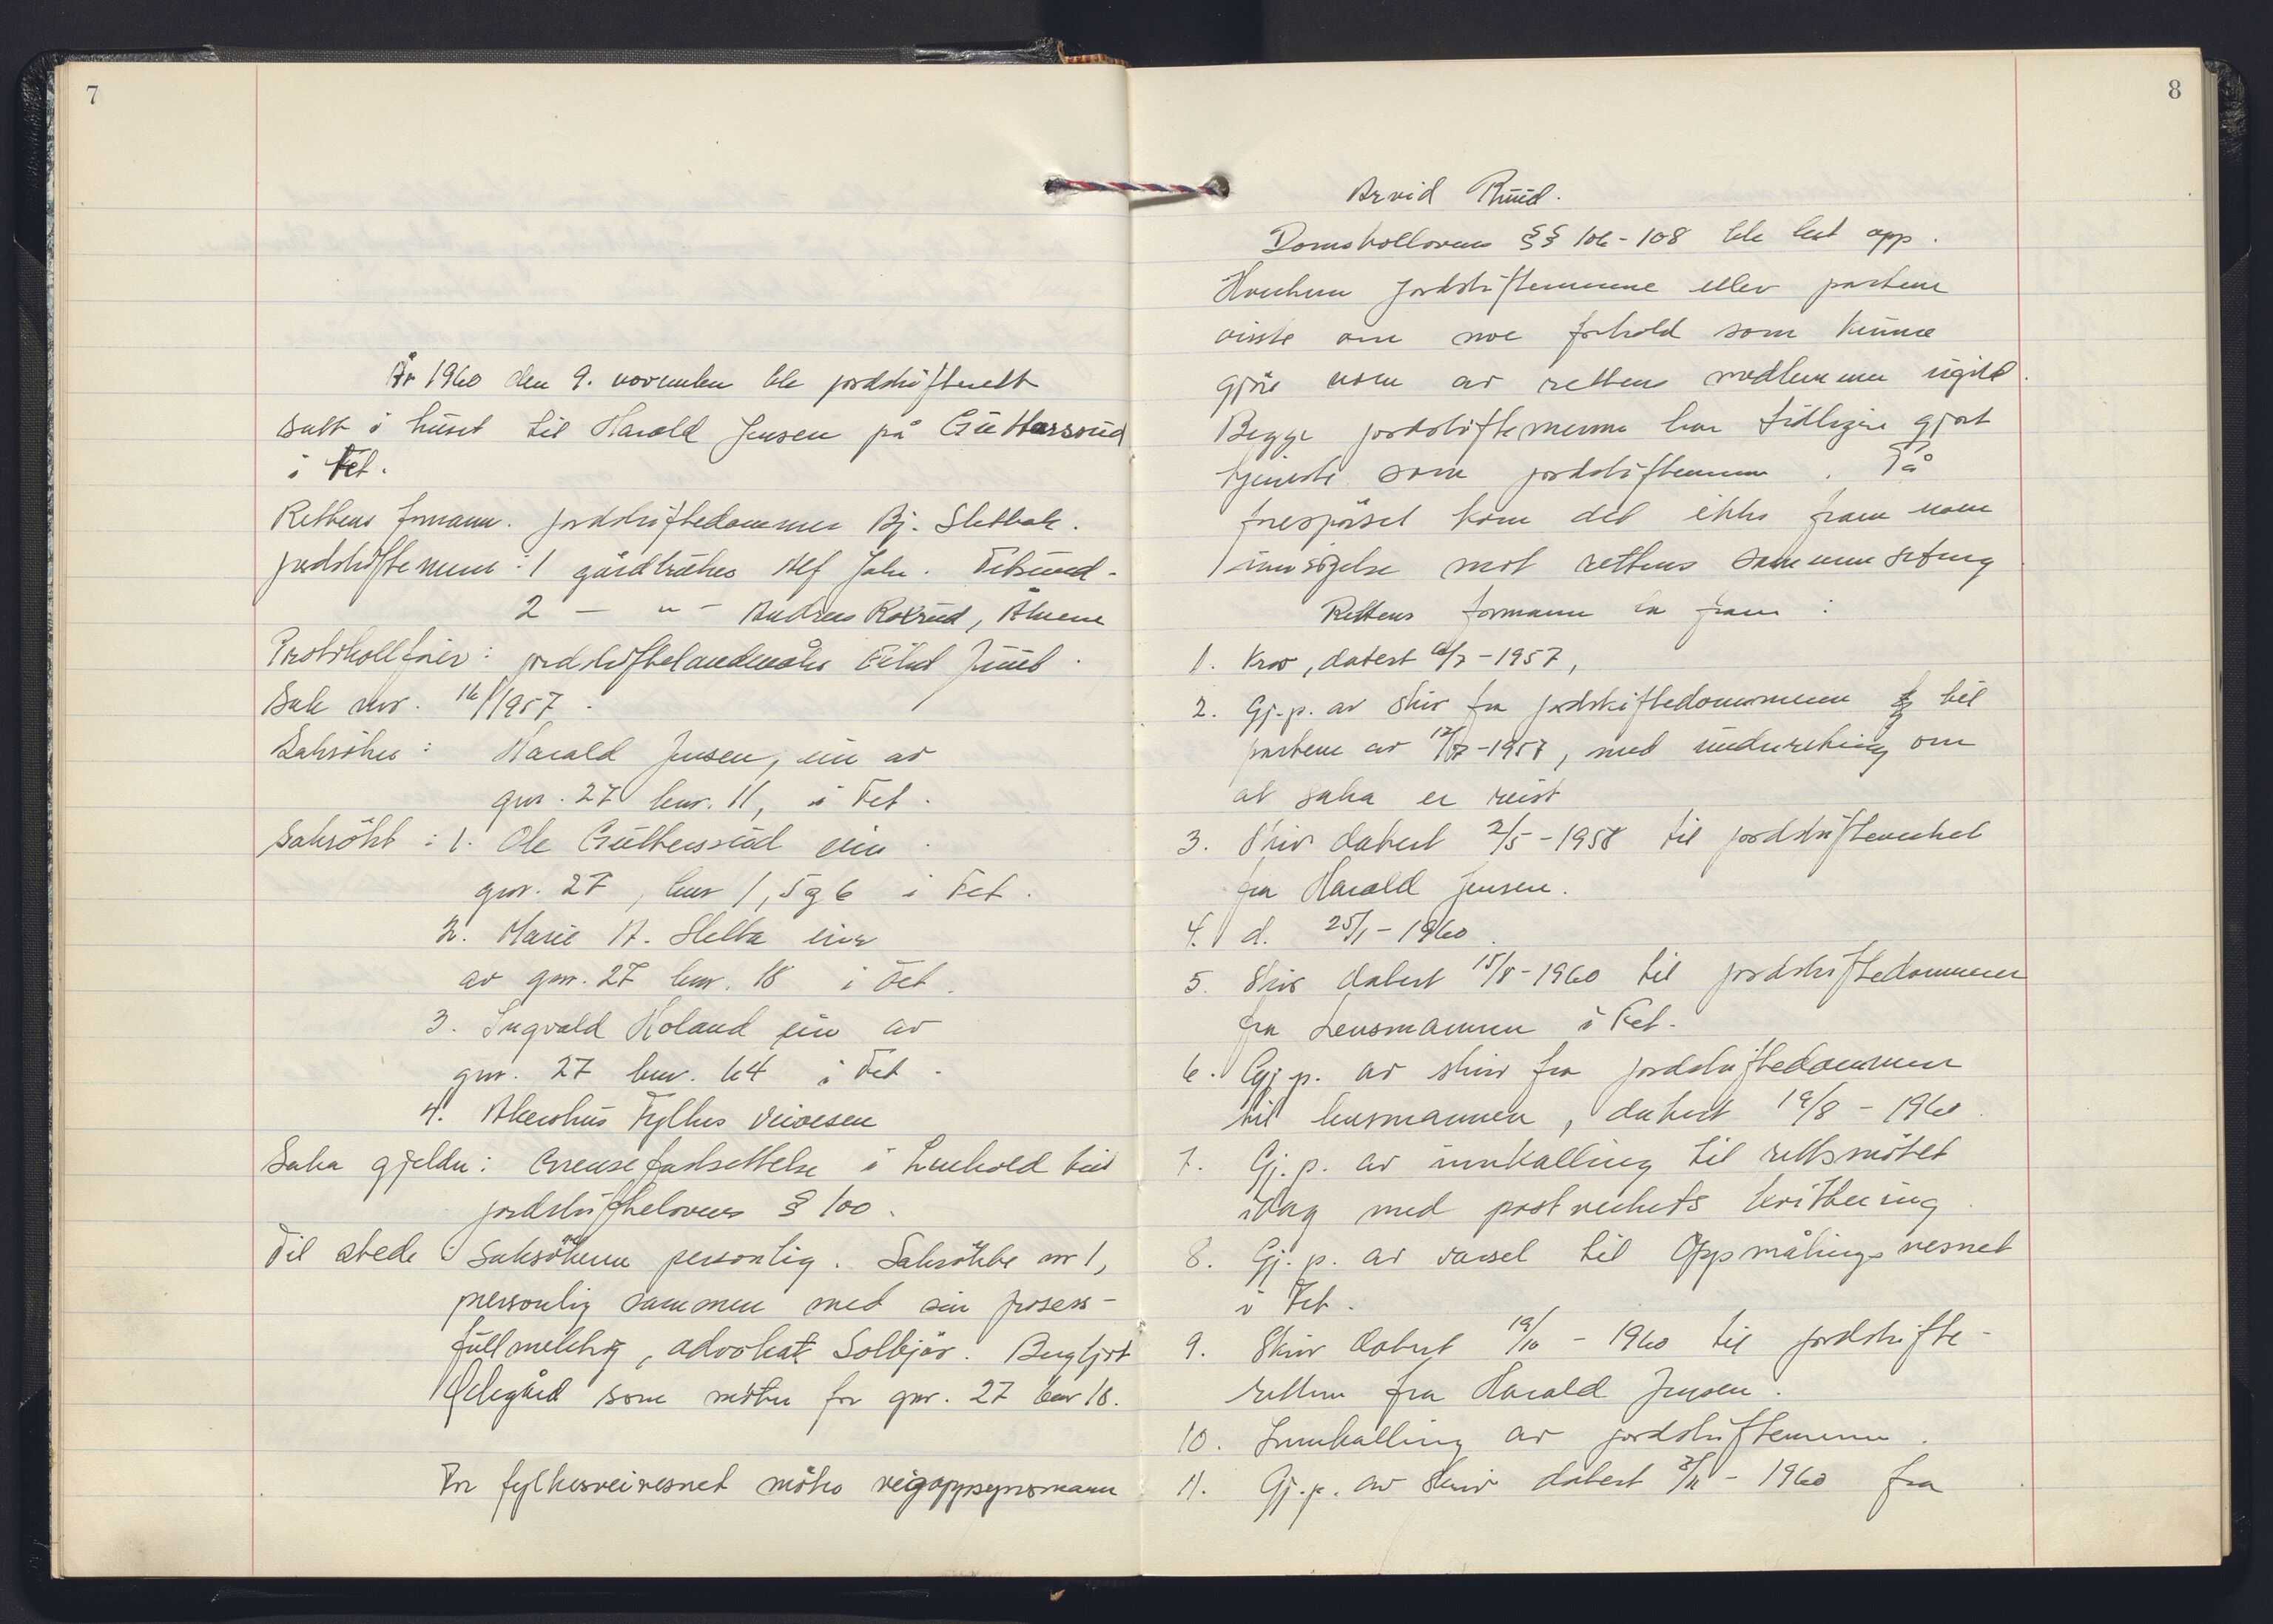 7
År 1960 den 9. november ble jordskifterett
satt i huset til Harald Jensen på Guttersrud
i Fet.
Rettens formann. jordskiftedommer Bj. Sletbak.
jordskiftemenn: 1 gårdbruker Alf Jahr. Fetsund.
2 — " — Andreas Roxrud, Åmene
Protokollfører: jordskiftelandmåler Eilif Juul.
Sak nr. 16/1957.
Saksøker: Harald Jensen, eier av
gnr. 27 bnr. 11, i Fet.
Saksøkt: 1. Ole Guttersrud eier
gnr. 27, bnr 1, 5 og 6 i Fet.
2. Marie A. Sletta eier
av gnr. 27 bnr. 18 i Fet.
3. Ingvald Holand eier av
gnr. 27 bnr. 64 i Fet.
4. Akershus Fylkes veivesen
Saka gjelder: Grensefastsettelse i henhold til
jordskiftelovens § 100.
Til stede: Saksøkeren personlig. Saksøkte nr 1,
personlig sammen med sin prosess-
fullmektig, advokat Solbjør. Bergljot
som møter for gnr. 27 bnr 18.
For fylkesveivesnet møter veigoppsynsmann
8
Arvid Ruud.
Domstollovens §§ 106-108 ble lest opp.
Hverken jordskiftemenne eller partene
visste om noe forhold som kunne
gjøre noen av rettens medlemmer ugild.
Begge jordskiftemenne har tidligere gjort
tjeneste som jordskiftemenn. På
forespørsel kom det ikke fram noen
innvigelse mot rettens sammensetning
Rettens formann la fram:
1. Krav, datert 6/7-1957,
2. Gj.p. av skiv fra jordskiftedommeren til
partene av 12/7-1957, med underretning om
at saka er reist
3. Skiv datert 2/5-1958 til jordskifteverket
fra Harald Jensen.
4. d. 25/1-1960.
5. Skiv datert 15/8-1960 til jordskiftedommeren
fra Lensmannen i Fet.
6. Gj.p. av skiv fra jordskiftedommeren
til lensmannen, datert 19/8-1960.
7. Gj.p. av innkalling til rettsmøtet
idag med postverkets kvittering
8. Gj.p. av varsel til Oppmålingsvesnet
i Fet.
9. Skiv datert 19/10-1960 til jordskifte-
retten fra Harald Jensen.
10. Innkalling av jordskiftemenn.
11. Gj.p. av skiv datert 3/11-1960 fra